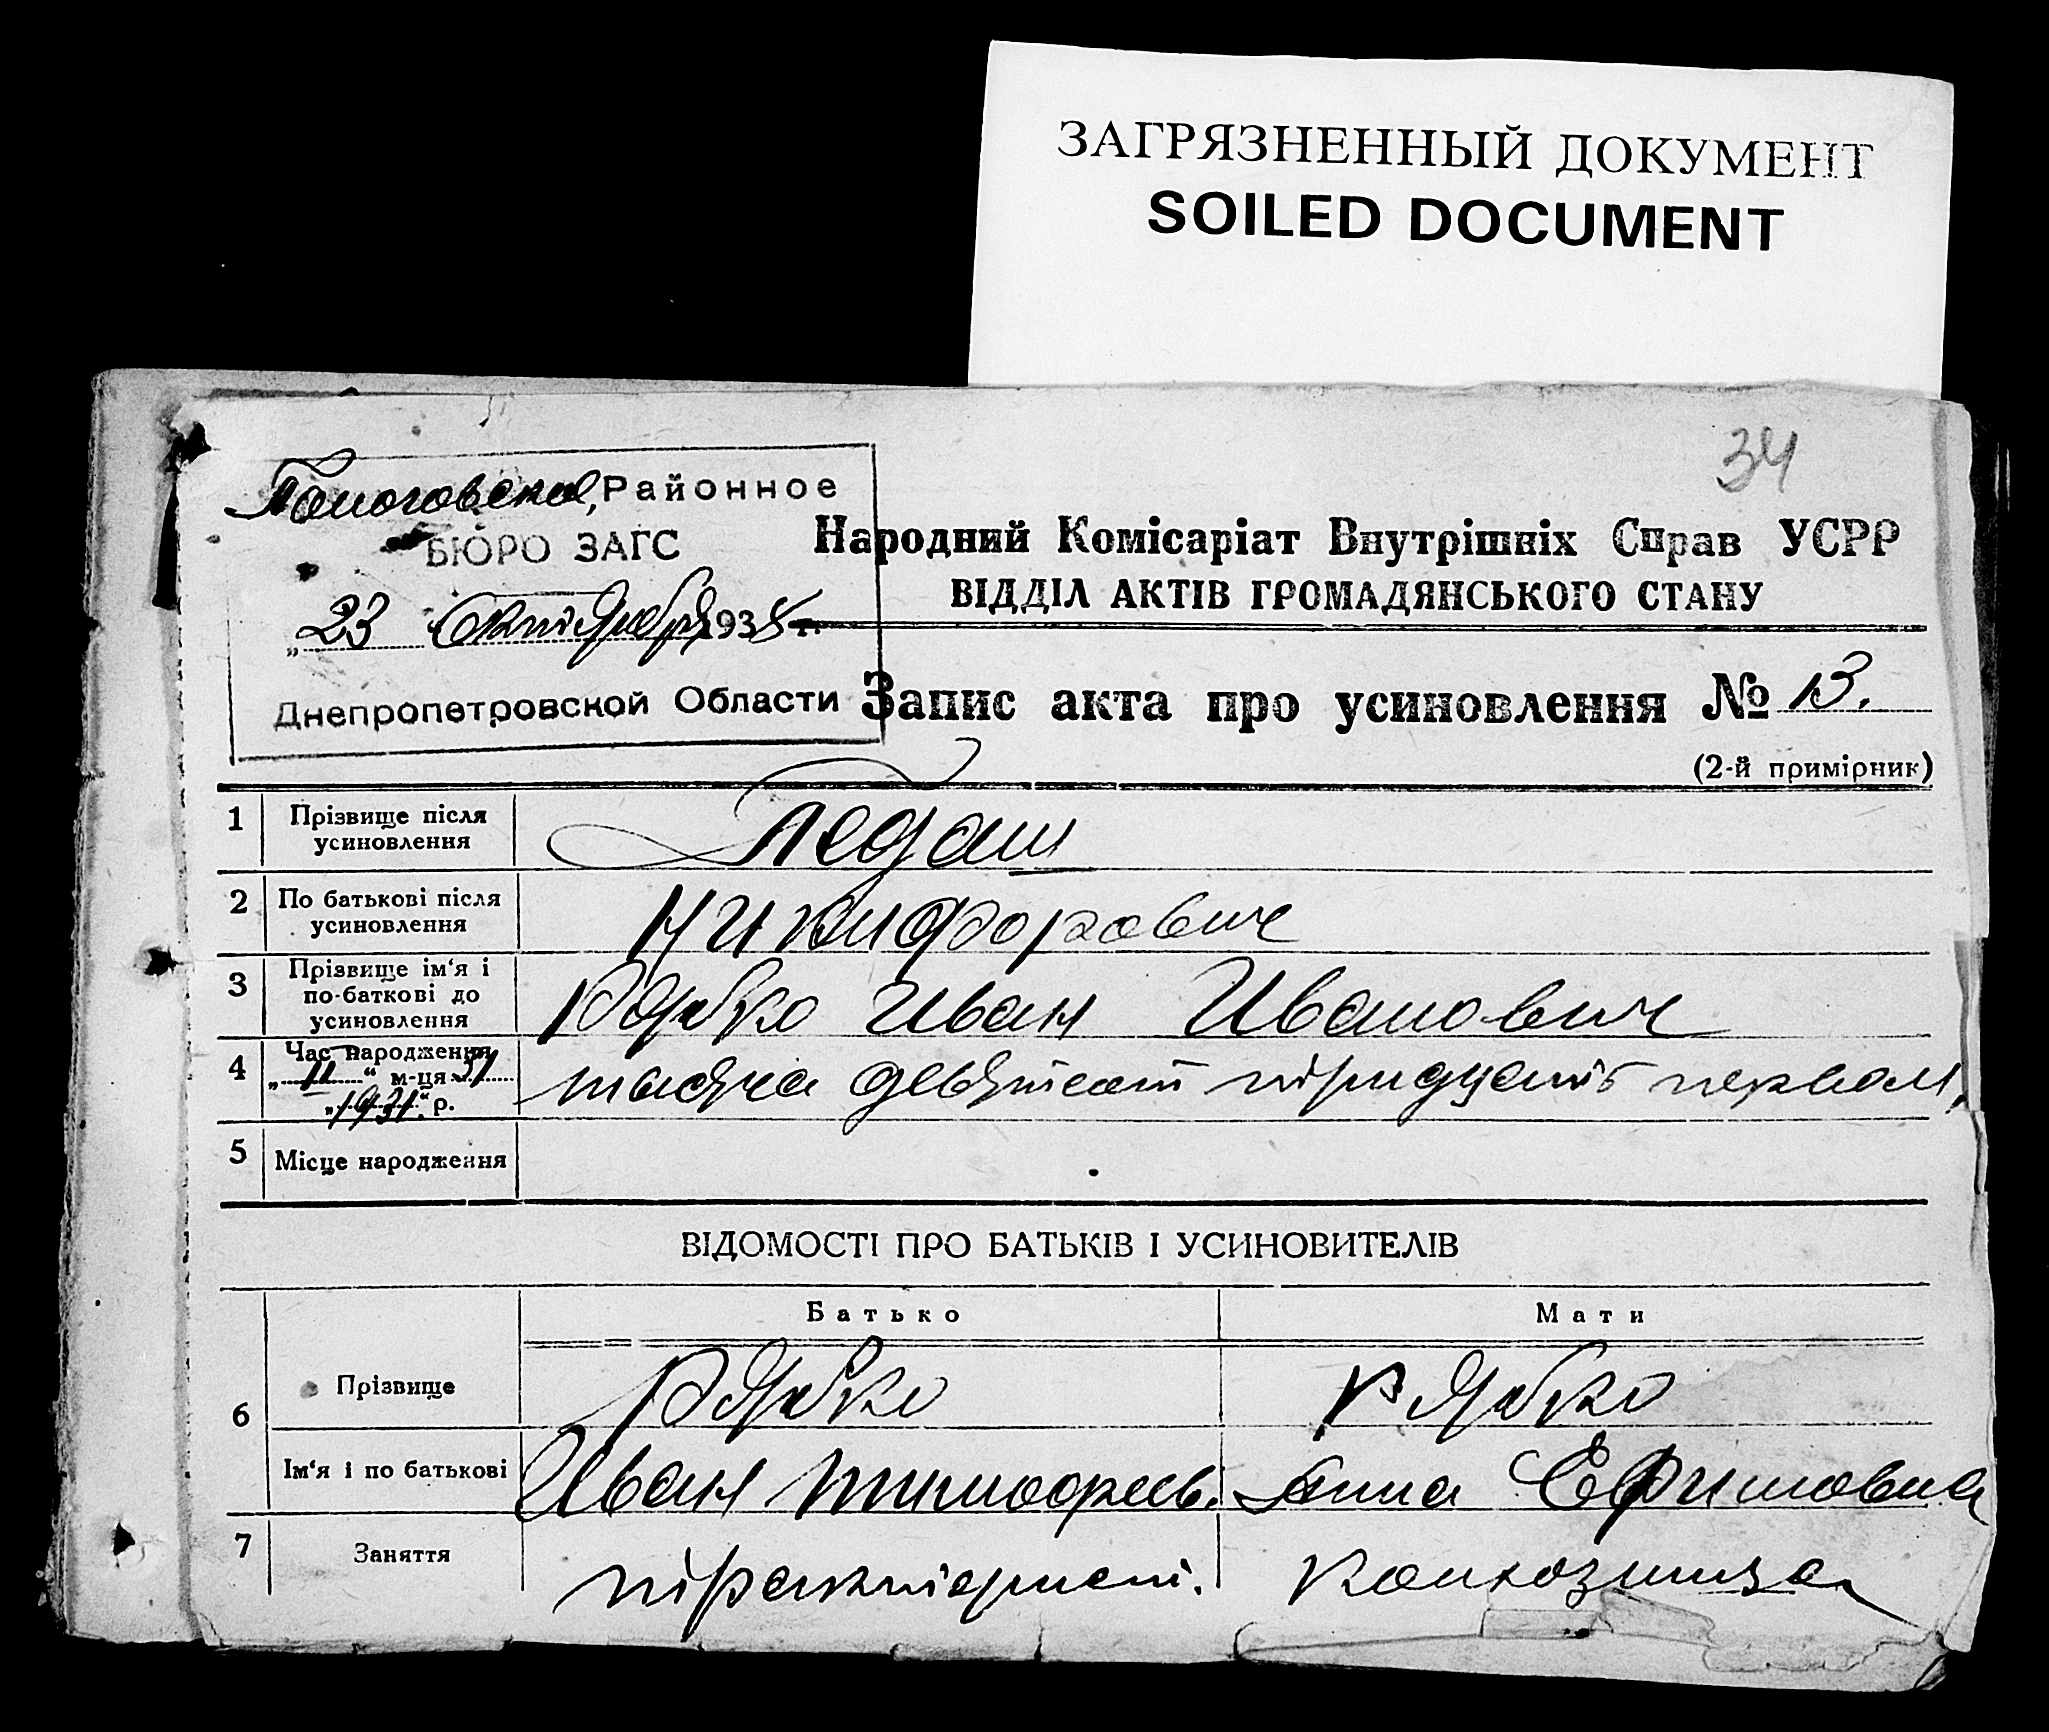 ЗАГРЯЗНЕННЫЙ ДОКУМЕНТ
SOILED DOCUMENT
34
Районное
БЮРО ЗАГС
„23 Октября 1938 г.
Днепропетровской Области
Народний Комісаріат Внутрішніх Справ УСРР
ВІДДІЛ АКТІВ ГРОМАДЯНСЬКОГО СТАНУ
Запис акта про усиновлення № 13.
(2-й примірник)
1 Прізвище після усиновлення Педаш
2 По батькові після усиновлення Никифорович
3 Прізвище ім'я і по-баткові до усиновлення Рябко Иван Иванович
4 Час народження
„11“ м-ця
„1931“ р. тысяча девятсот тридцать первом
5 Місце народження
ВІДОМОСТІ ПРО БАТЬКІВ І УСИНОВИТЕЛІВ
Батько Мати
6 Прізвище Рябко Рябко
Ім'я і по батькові Иван Тимофеев. Анна Ефимовна
7 Заняття тракторист. колхозница